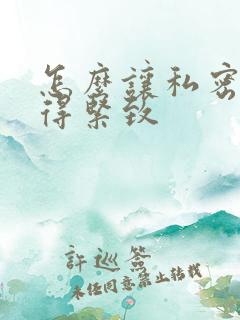 怎麼讓私密
得緊致
許巡簽
未经同意禁止转载